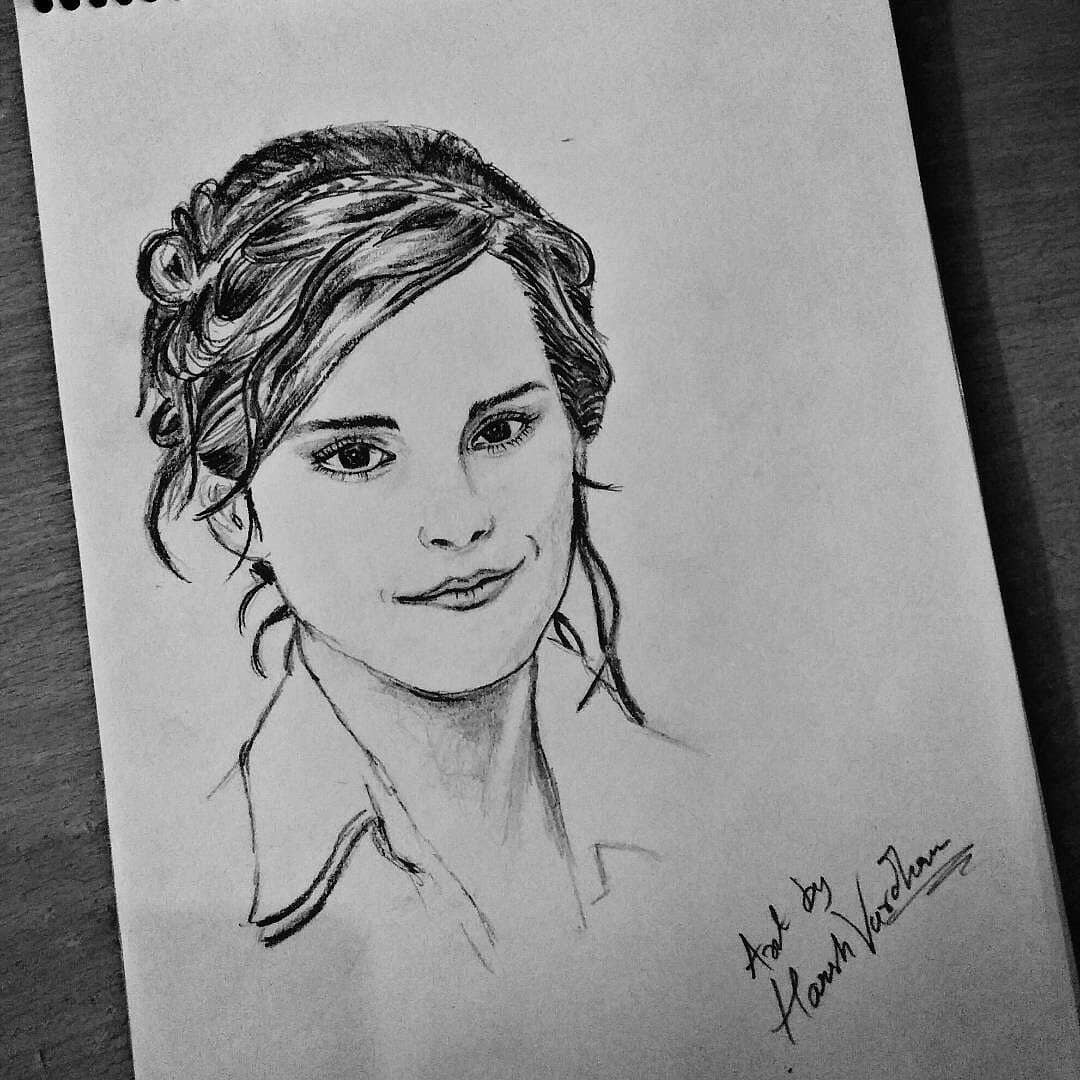 Art by
Harsh Vardhan